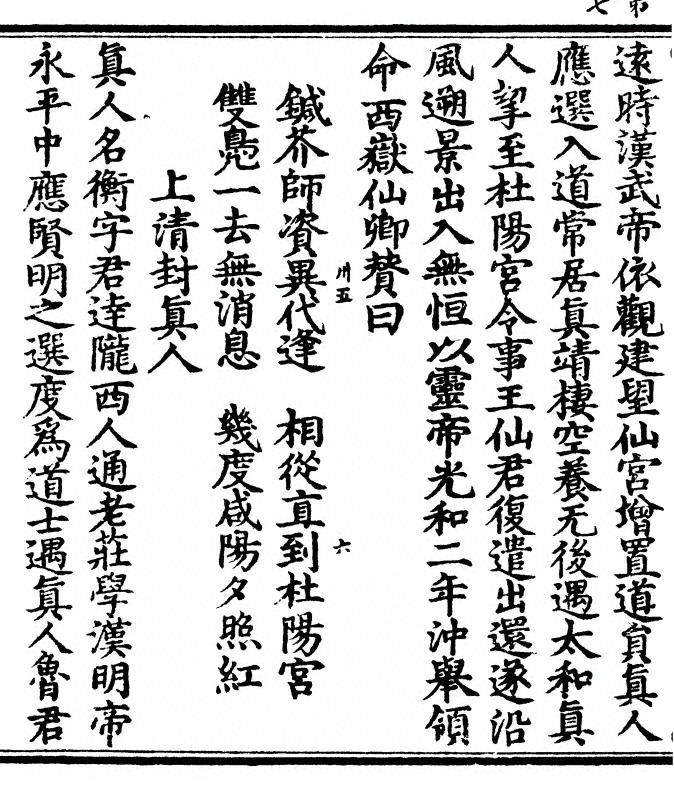 遠時漢武帝依觀建望仙宮增置道員眞人
應選入道常居眞靖棲空養无後遇太和眞
人挈至杜陽宮令事王仙君復遣出還遂沿
風遡景出入無恒以靈帝光和二年沖舉領
命西嶽仙卿贊曰
鍼芥師資異代逢　相從直到杜陽宮
卅五　六
雙鳧一去無消息　幾度咸陽夕照紅
上清封眞人
眞人名衡字君逹隴西人通老莊學漢明帝
永平中應賢明之選度爲道士遇眞人魯君